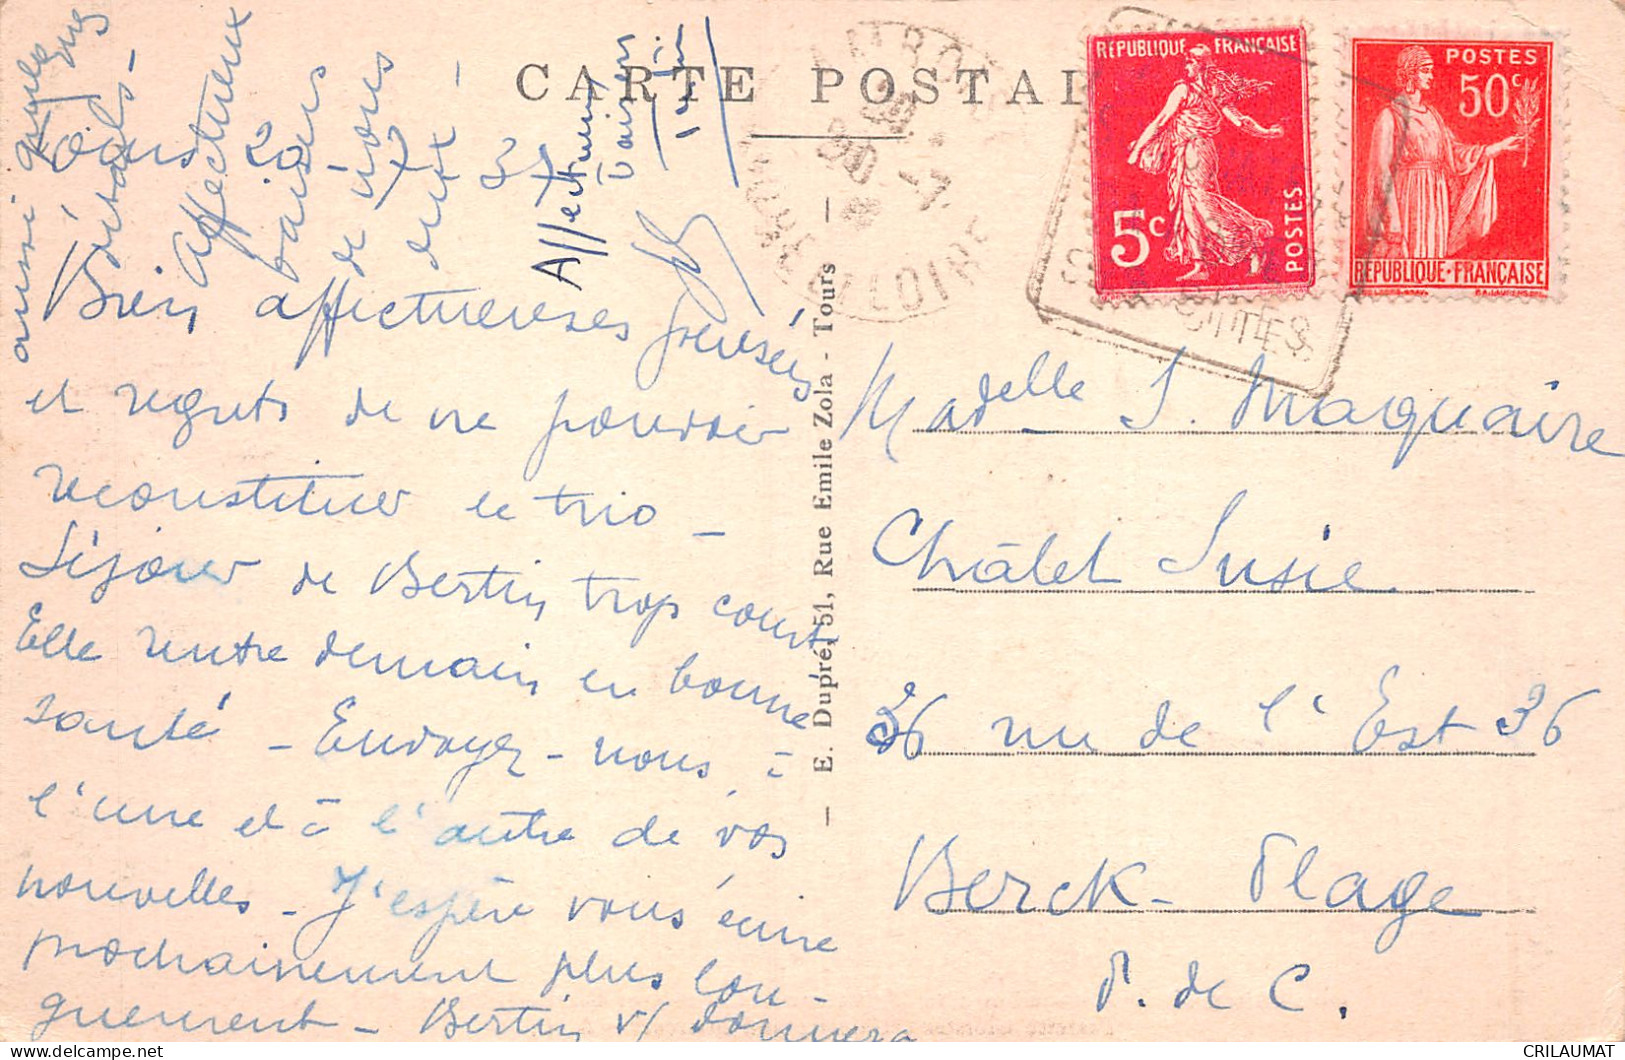 CARTE POSTALE
RÉPUBLIQUE FRANÇAISE
5c
POSTES
POSTES
50c
RÉPUBLIQUE·FRANÇAISE
LOIRE
E. Dupré, 51, Rue Emile Zola - Tours
aussi quelques
Affectueux
baisers
de nous
deux -
Bien affectueuses pensées
et regrets de ne pouvoir
reconstituer le trio -
Séjour de Bertin trop court
Elle rentre demain en bonne
santé - Envoyez-nous à
l'une et à l'autre de vos
nouvelles - J'espère vous écrire
prochainement plus lon-
guement - Bertin v/ donnera
Madelle S. Maquaire
Châlet Susie
36 rue de l'Est 36
Berck-Plage
P. de C.
CRILAUMAT